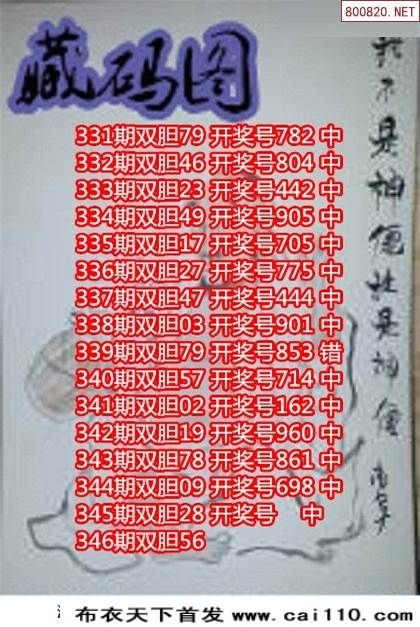 800820.NET
藏码图
331期双胆79 开奖号782 中
332期双胆46 开奖号804 中
333期双胆23 开奖号442 中
334期双胆49 开奖号905 中
335期双胆17 开奖号705 中
336期双胆27 开奖号775 中
337期双胆47 开奖号444 中
338期双胆03 开奖号901 中
339期双胆79 开奖号853 错
340期双胆57 开奖号714 中
341期双胆02 开奖号162 中
342期双胆19 开奖号960 中
343期双胆78 开奖号861 中
344期双胆09 开奖号698 中
345期双胆28 开奖号 中
346期双胆56
不是神仙胜是神仙
布衣天下首发 www.cai110.com